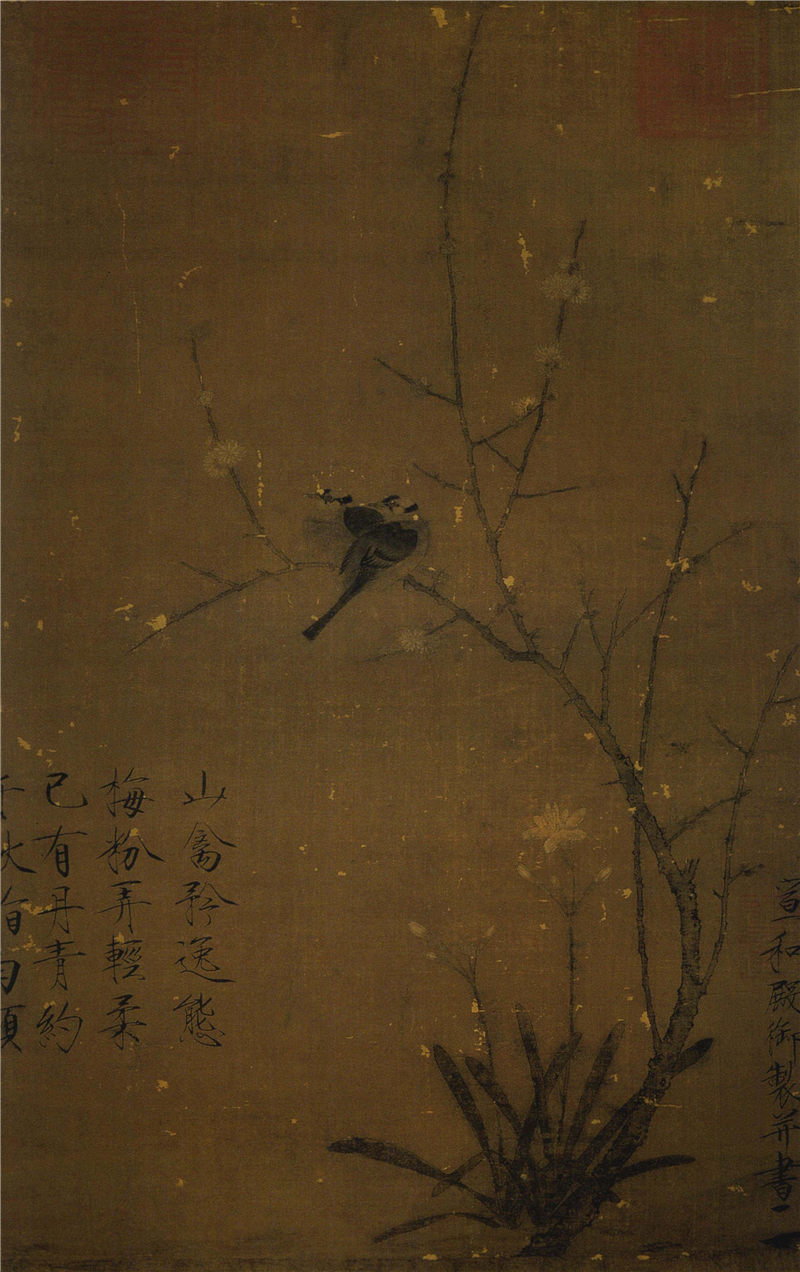 宣和殿御製并書
山禽矜逸態
梅粉弄輕柔
已有丹青約
千秋指白頭